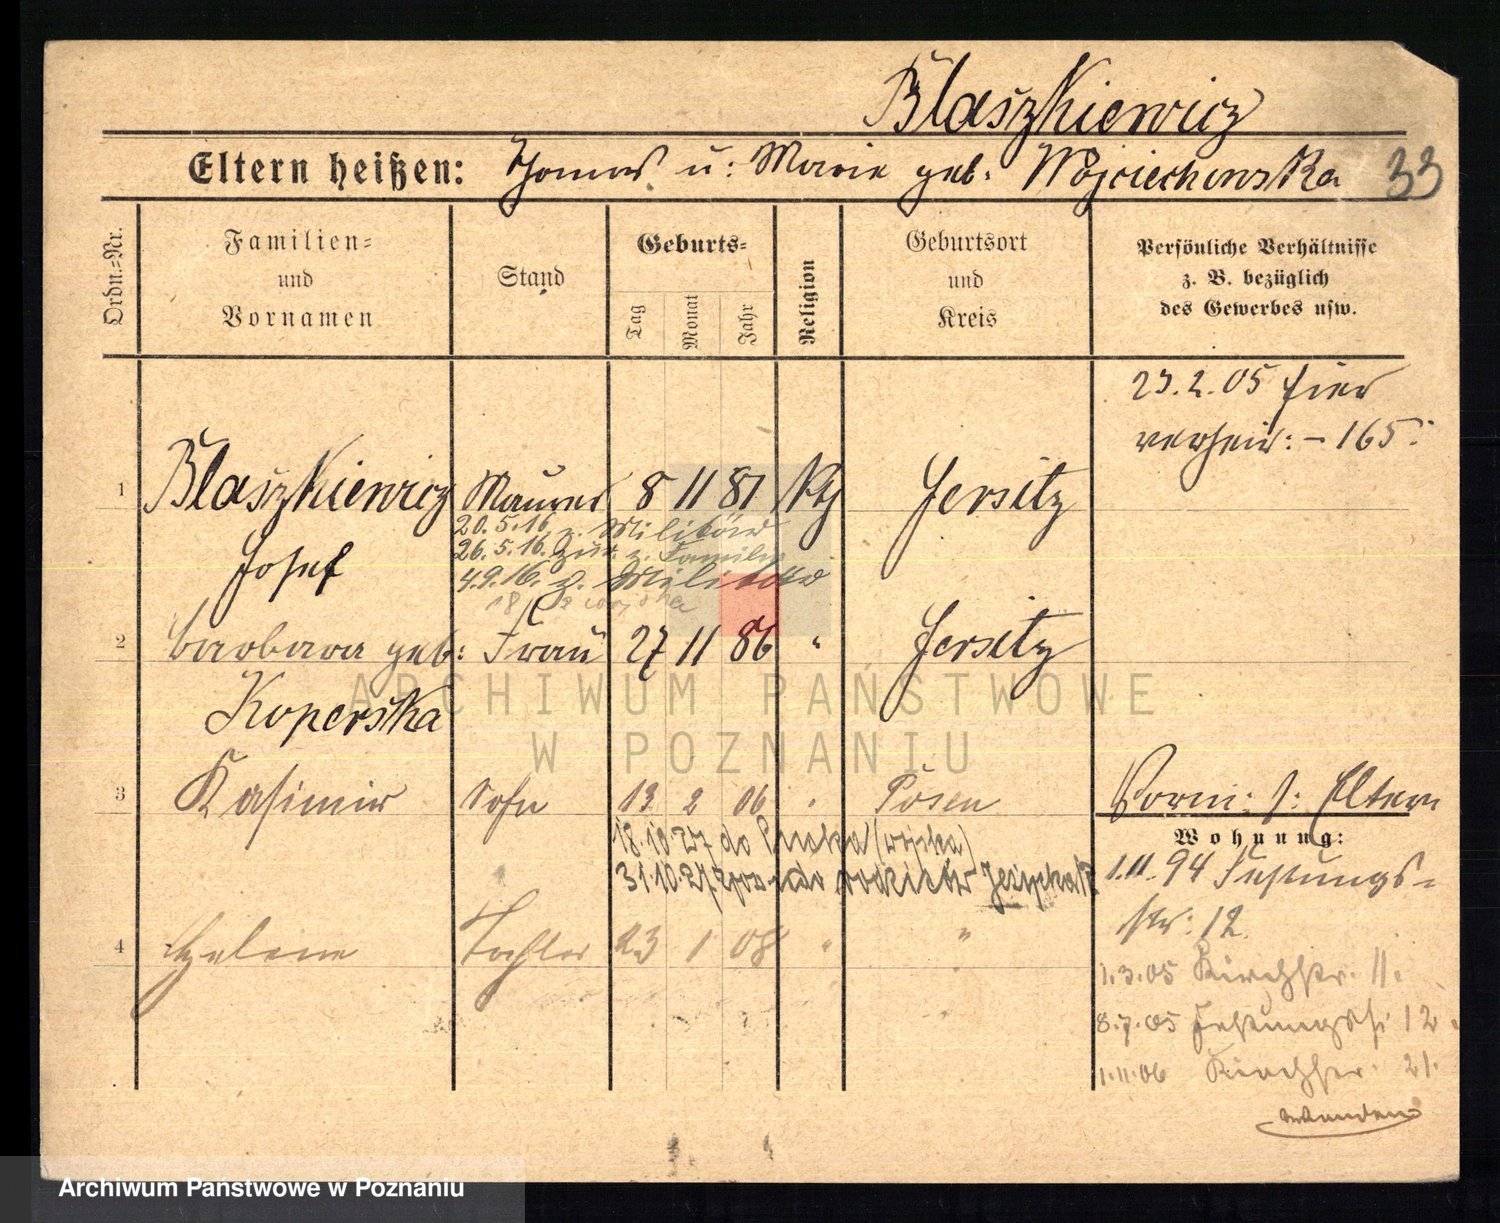 Blaszkiewicz
Eltern heißen: Thomas u: Marie geb. Wojciechowska 33
Ordn.-Nr.
Familien-
und
Vornamen
Stand
Geburts-
Tag
Monat
Jahr
Religion
Geburtsort
und
Kreis
Persönliche Verhältnisse
z. B. bezüglich
des Gewerbes usw.
23.2.05 hier
verheir: - 165.
1 Blaszkiewicz Maurer 8 11 81 kth Jersitz
20.5.16. z. Militär
26.5.16. zur. z. Familie
Josef
4.9.16. z. Militär
18/ z wojska
2 Barbara geb: Frau 27 11 86 " Jersitz
Koperska
3 Kasimir Sohn 13 2 06 " Posen
Vorm: s: Eltern
Wohnung:
18.10.27 do (wojska)
31.10.27 do rodziców
1.11.94 Festungs-
str: 12.
4 Helene Tochter 23 1 08 " "
1.3.05 Kirchstr. 11.
8.7.05 Festungsstr 12.
1.11.06 Kirchstr. 21.
wenden
ARCHIWUM PAŃSTWOWE
W POZNANIU
Archiwum Państwowe w Poznaniu